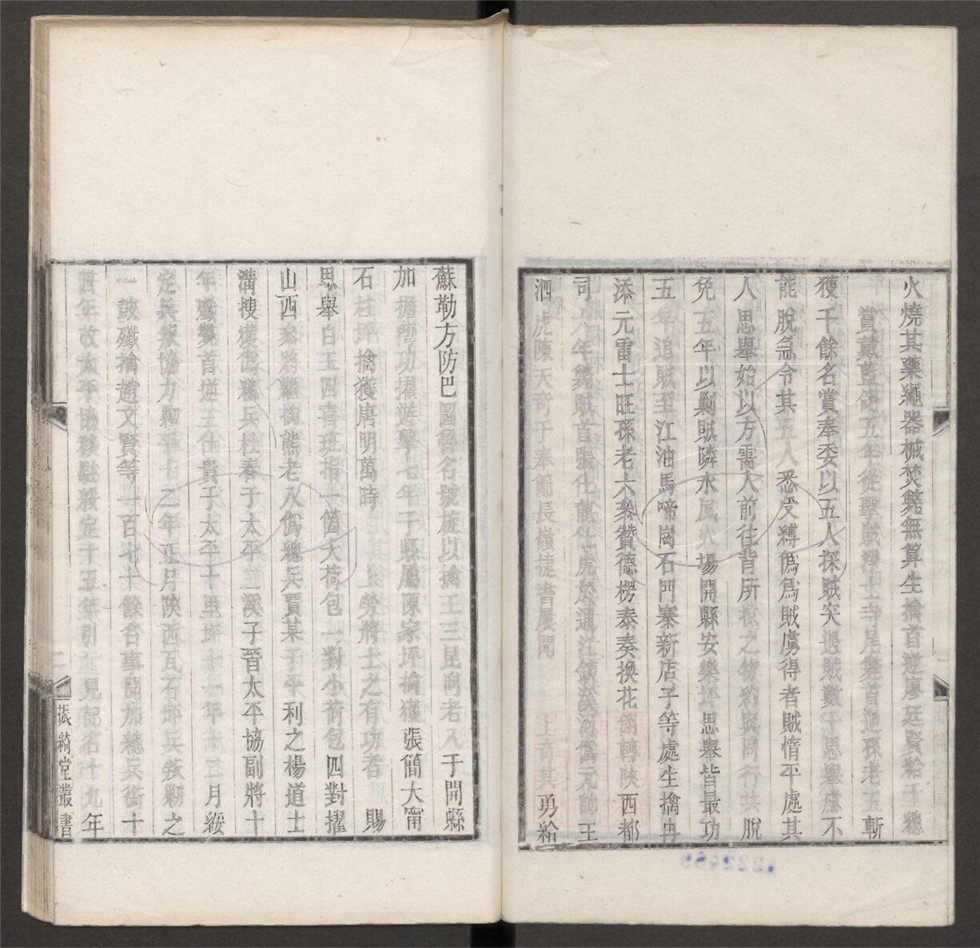 火燒其藥繩器械焚斃無算生擒首逆廖廷賢給千總
賞戴藍翎五年從擊賊淨土寺尾斃首逆孫老五斬
獲千餘名賞奉委以五人探賊突遇賊數千思舉慮不
能脫急令其五人悉受縛偽為賊虜得者賊惰平處其
人思舉始以方需大前往背所松之物約與同行共脫
免五年以剿賊隣水風火場開縣安樂坪思舉皆最功
五年追賊至江油馬啼崗石門寨新店子等處生擒冉
添元雷士旺孫老大參贊德楞泰奏換花翎轉陜西都
司六年斃賊首張仕龍於通江鐵溪河偽元帥王
泗虎陳天奇于奉節長嶺捷書屢聞 上嘉其勇給
蘇勒方防巴圖魯名號旋以擒王三昆向老人于開縣
加擔勞功擢遊擊七年于縣屬陳家坪擒獲張簡大甯
石柱坪擒獲唐明萬時 上勞將士之有功者 賜
思舉白玉四喜班指一箇大荷包一對小荷包四對擢
山西參將繼擒熊老八偽總兵賈某于平利之楊道士
溝搜獲偽總兵杜春于太平三溪子晉太平協副將十
年殲斃首逆三仕貴于太平十里坪十一年十二月綏
定兵叛協力剿平十二年正月陜西瓦石坪兵叛剿之
一鼓殲擒趙文賢等一百七十餘名事聞加總兵銜十
四年改太平協移駐綏定十五年引見記名十九年
張綺堂叢書